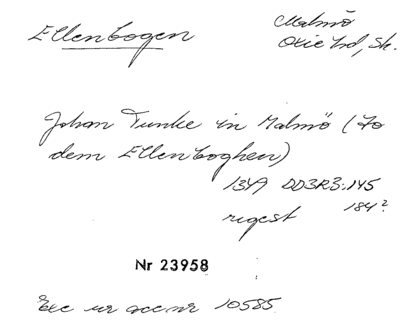 Ellenbogen
Malmö
Oxie hd, Sk.
Johan Tunke in Malmö (To
dem Ellenboghen)
1349 DD3R3:145
regest 184?
Nr 23958
Exc ur acc nr 10585